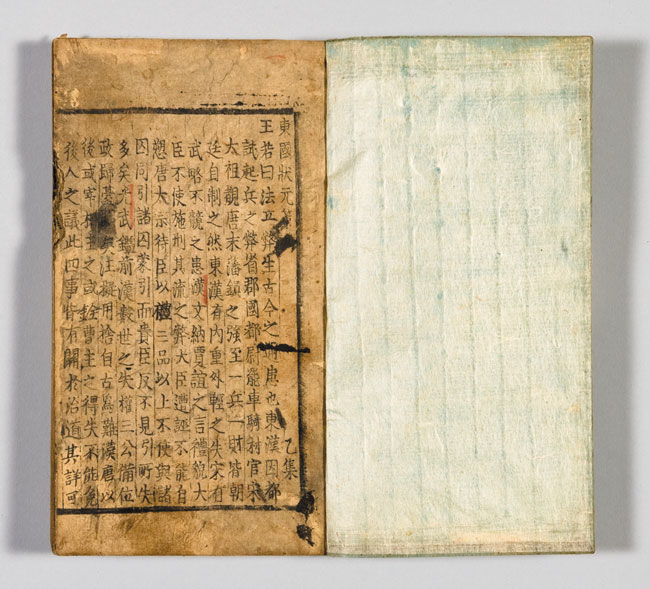 東國狀元 乙集
王若曰法立弊生古今之患也東漢因都
試起兵之弊省郡國都尉罷車騎材官宋
太祖觀唐末藩鎭之強王一兵一財皆朝
廷自制之然東漢有內重外輕之失宋有
武略不競之患漢文納賈誼之言禮貌大
臣不使施刑其流之弊大臣遭誣不能自
愬唐太宗待臣以禮三品以上不使與諸
囚同引諸囚蒙引而貴臣反不見引所失
多矣光武鑑前漢數世之失權三公備位
政歸注擬用捨自古爲難漢唐以
後或宰相主之或銓曹主之得失不能免
後人之議此四事皆有關於治道其詳可